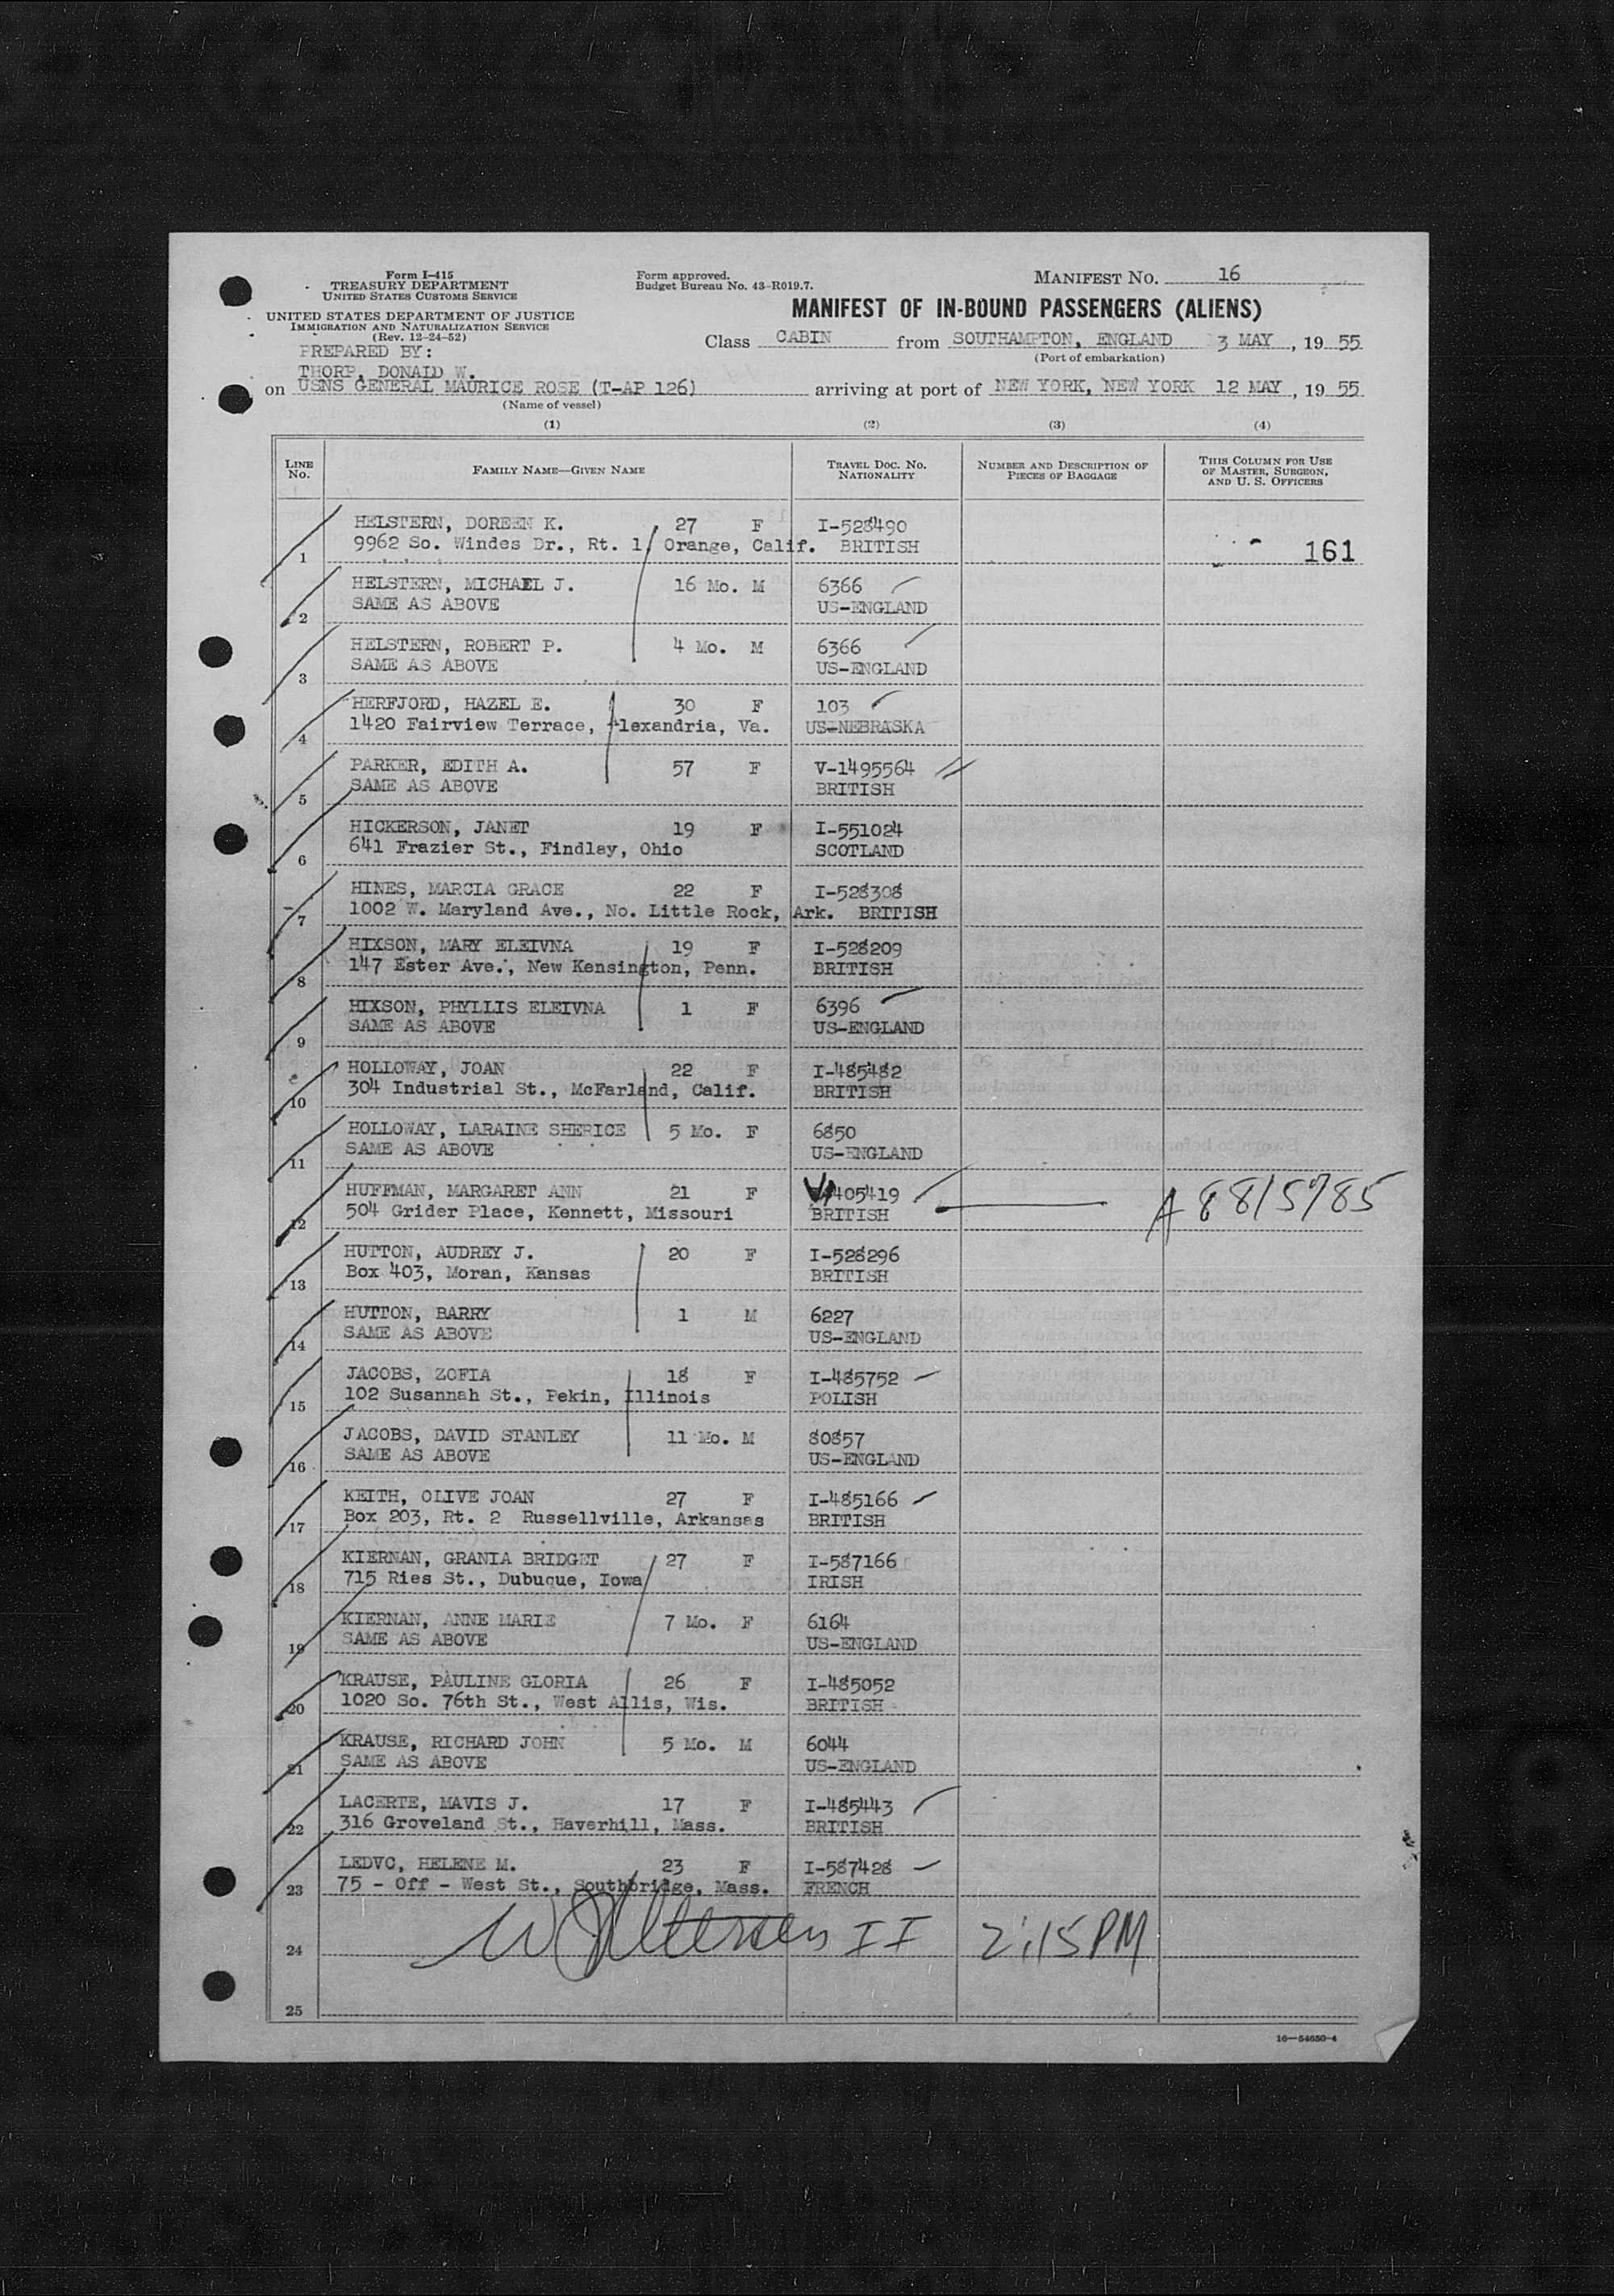 Form I-415
TREASURY DEPARTMENT
UNITED STATES CUSTOMS SERVICE
UNITED STATES DEPARTMENT OF JUSTICE
IMMIGRATION AND NATURALIZATION SERVICE
(Rev. 12-24-52)
PREPARED BY:
THORP, DONALD W.
Form approved.
Budget Bureau No. 43-R019.7.
MANIFEST NO. 16
MANIFEST OF IN-BOUND PASSENGERS (ALIENS)
Class CABIN from SOUTHAMPTON, ENGLAND 3 MAY, 19 55
(Port of embarkation)
on USNS GENERAL MAURICE ROSE (T-AP 126) arriving at port of NEW YORK, NEW YORK 12 MAY, 19 55
(Name of vessel)
(1) (2) (3) (4)
LINE NO. FAMILY NAME—GIVEN NAME TRAVEL DOC. NO. NATIONALITY NUMBER AND DESCRIPTION OF PIECES OF BAGGAGE THIS COLUMN FOR USE OF MASTER, SURGEON, AND U. S. OFFICERS
HELSTERN, DOREEN K. 27 F I-528490
1 9962 So. Windes Dr., Rt. 1, Orange, Calif. BRITISH 161
HELSTERN, MICHAEL J. 16 Mo. M 6366
2 SAME AS ABOVE US-ENGLAND
HELSTERN, ROBERT P. 4 Mo. M 6366
3 SAME AS ABOVE US-ENGLAND
HERFJORD, HAZEL E. 30 F 103
4 1420 Fairview Terrace, Alexandria, Va. US-NEBRASKA
PARKER, EDITH A. 57 F V-1495564
5 SAME AS ABOVE BRITISH
HICKERSON, JANET 19 F I-551024
6 641 Frazier St., Findlay, Ohio SCOTLAND
HINES, MARCIA GRACE 22 F I-528308
7 1002 W. Maryland Ave., No. Little Rock, Ark. BRITISH
HIXSON, MARY ELEIVNA 19 F I-528209
8 147 Ester Ave., New Kensington, Penn. BRITISH
HIXSON, PHYLLIS ELEIVNA 1 F 6396
9 SAME AS ABOVE US-ENGLAND
HOLLOWAY, JOAN 22 F I-485482
10 304 Industrial St., McFarland, Calif. BRITISH
HOLLOWAY, LARAINE SHERICE 5 Mo. F 6850
11 SAME AS ABOVE US-ENGLAND
HUFFMAN, MARGARET ANN 21 F 405419 A 8815785
12 504 Grider Place, Kennett, Missouri BRITISH
HUTTON, AUDREY J. 20 F I-528296
13 Box 403, Moran, Kansas BRITISH
HUTTON, BARRY 1 M 6227
14 SAME AS ABOVE US-ENGLAND
JACOBS, ZOFIA 18 F I-485752
15 102 Susannah St., Pekin, Illinois POLISH
JACOBS, DAVID STANLEY 11 Mo. M 80857
16 SAME AS ABOVE US-ENGLAND
KEITH, OLIVE JOAN 27 F I-485166
17 Box 203, Rt. 2 Russellville, Arkansas BRITISH
KIERNAN, GRANIA BRIDGET 27 F I-587166
18 715 Ries St., Dubuque, Iowa IRISH
KIERNAN, ANNE MARIE 7 Mo. F 6164
19 SAME AS ABOVE US-ENGLAND
KRAUSE, PAULINE GLORIA 26 F I-485052
20 1020 So. 76th St., West Allis, Wis. BRITISH
KRAUSE, RICHARD JOHN 5 Mo. M 6044
21 SAME AS ABOVE US-ENGLAND
LACERTE, MAVIS J. 17 F I-485443
22 316 Groveland St., Haverhill, Mass. BRITISH
LEDVC, HELENE M. 23 F I-587428
23 75 - Off - West St., Southbridge, Mass. FRENCH
24 II 2:15 PM
25
16—54650-4